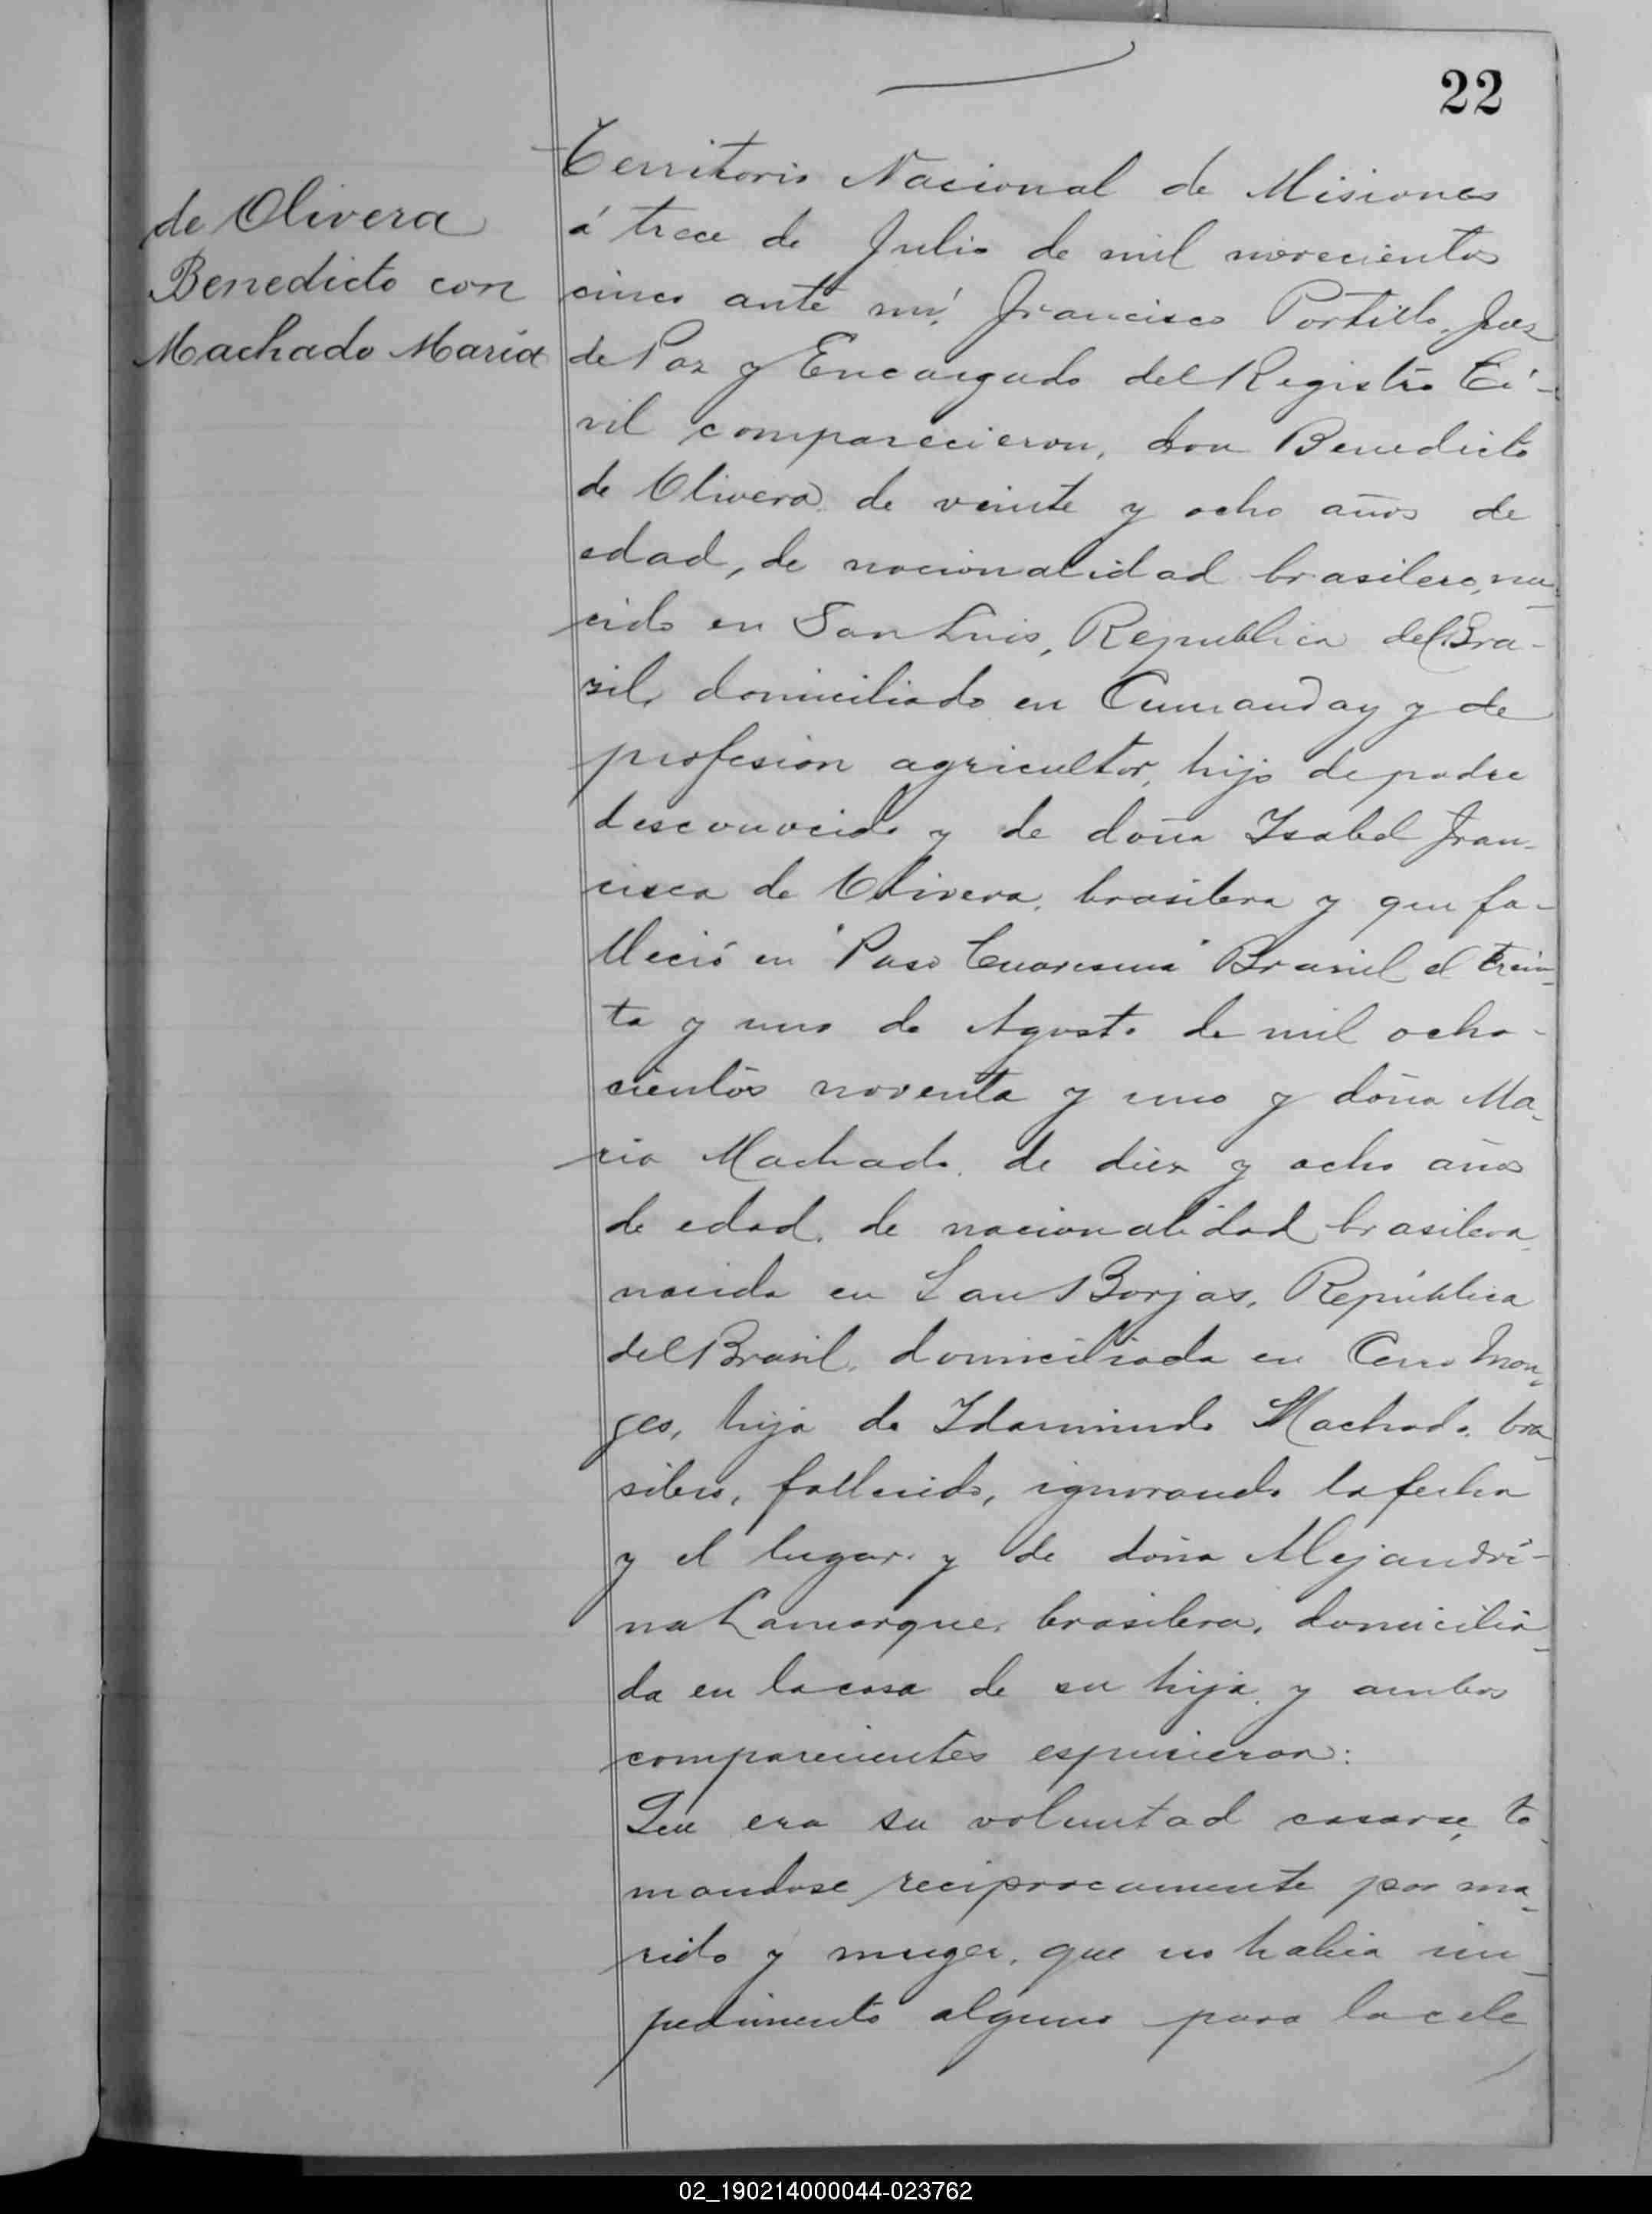 22
de Olivera
Benedicto con
Machado Maria
Territorio Nacional de Misiones
á trece de Julio de mil novecientos
cinco ante mi, Francisco Portillo, Juez
de Paz y Encargado del Registro Ci-
vil comparecieron, don Benedicto
de Olivera de veinte y ocho años de
edad, de nacionalidad brasilero, na-
cido en San Luis, Republica del Bra-
sil, domiciliado en Cumanday y de
profesion agricultor, hijo de padre
desconocido y de doña Isabel Fran-
cisca de Olivera, brasilera y que fa-
lleció en "Paso Cuaresma" Brasil el trein-
ta y uno de Agosto de mil ocho-
cientos noventa y uno y doña Ma-
ria Machado, de diez y ocho años
de edad, de nacionalidad brasilera,
nacida en San Borjas, República
del Brasil, domiciliada en Cerro Mon-
ges, hija de Machado, bra-
silero, fallecido, ignorando la fecha
y el lugar y de doña Alejandri-
na Lamarque, brasilera, domicilia-
da en la casa de su hija y ambos
comparecientes espusieron:
Que era su voluntad casarse, to-
mandose reciprocamente por ma-
rido y muger, que no habia im-
pedimento alguno para la cele
02_190214000044-023762